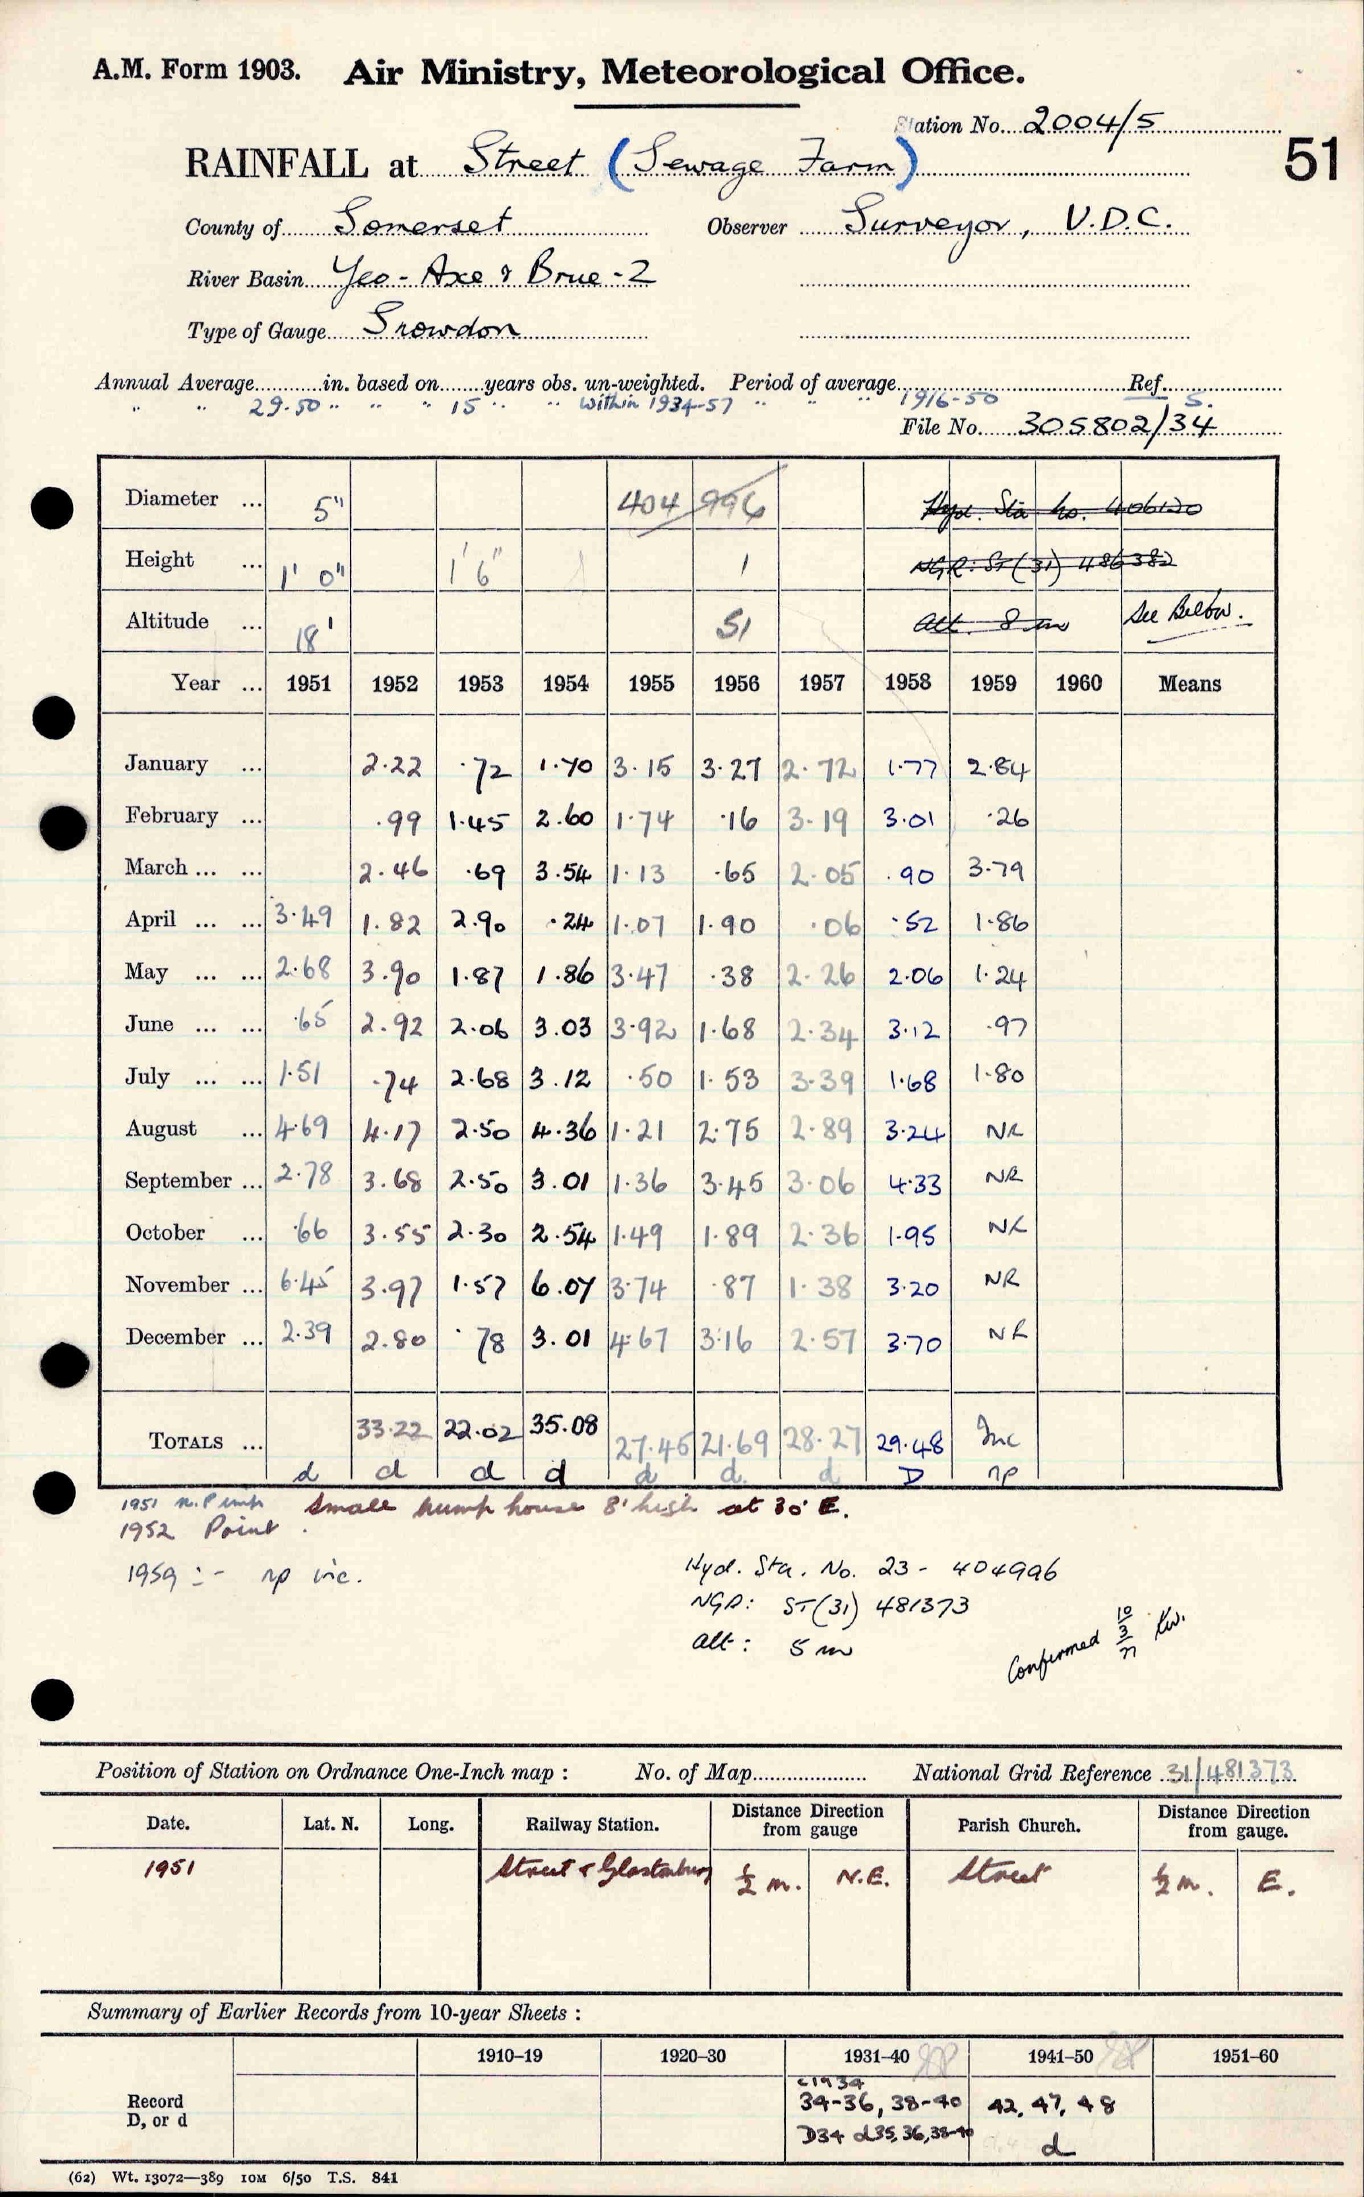 A.M. Form 1903. Air Ministry, Meteorological Office.
Station No. 2004/5
51
RAINFALL at Street (Sewage Farm)
County of Somerset Observer Surveyor, U.D.C.
River Basin Yeo - Axe & Brue - 2
Type of Gauge Snowdon
Annual Average in. based on years obs. un-weighted. Period of average Ref.
" " 29.50 " " " 15 " " " within 1934-57 " " " 1916-50 S.
File No. 305802/34
Diameter ... 5" 404 996 Hyd. Sta no. 406120
Height ... 1' 0" 1' 6" 1 NGR: ST (31) 486382
Altitude ... 18' 51 Alt. 8 m See Below.
Year ... 1951 1952 1953 1954 1955 1956 1957 1958 1959 1960 Means
January ... 2.22 .72 1.70 3.15 3.27 2.72 1.77 2.84
February ... .99 1.45 2.60 1.74 .16 3.19 3.01 .26
March ... ... 2.46 .69 3.54 1.13 .65 2.05 .90 3.79
April ... ... 3.49 1.82 2.90 .24 1.07 1.90 .06 .52 1.86
May ... ... 2.68 3.90 1.87 1.86 3.47 .38 2.26 2.06 1.24
June ... ... .65 2.92 2.06 3.03 3.92 1.68 2.34 3.12 .97
July ... ... 1.51 .74 2.68 3.12 .50 1.53 3.39 1.68 1.80
August ... 4.69 4.17 2.50 4.36 1.21 2.75 2.89 3.24 NR
September ... 2.78 3.68 2.50 3.01 1.36 3.45 3.06 4.33 NR
October ... .66 3.55 2.30 2.54 1.49 1.89 2.36 1.95 NR
November ... 6.45 3.97 1.57 6.07 3.74 .87 1.38 3.20 NR
December ... 2.39 2.80 .78 3.01 4.67 3.16 2.57 3.70 NR
TOTALS ... 33.22 22.02 35.08 27.45 21.69 28.27 29.48 Inc
d d d d d d. d D np
1951 Small pump house 8' high at 30° E.
1952 Point
1959 :- np inc.
Hyd. Sta. No. 23 - 404996
NGR: ST (31) 481373
Alt: 5 m
Confirmed 10/3/71
Position of Station on Ordnance One-Inch map : No. of Map National Grid Reference 31/481373
Date. Lat. N. Long. Railway Station. Distance Direction from gauge Parish Church. Distance Direction from gauge.
1951 Street & Glastonbury ½ m. N.E. Street ½ m. E.
Summary of Earlier Records from 10-year Sheets :
1910–19 1920–30 1931–40 1941–50 1951–60
Record D, or d
c1934
34-36, 38-40 42, 47, 48
D34 d35,36,38-40 d
(62) Wt. 13072—389 10M 6/50 T.S. 841